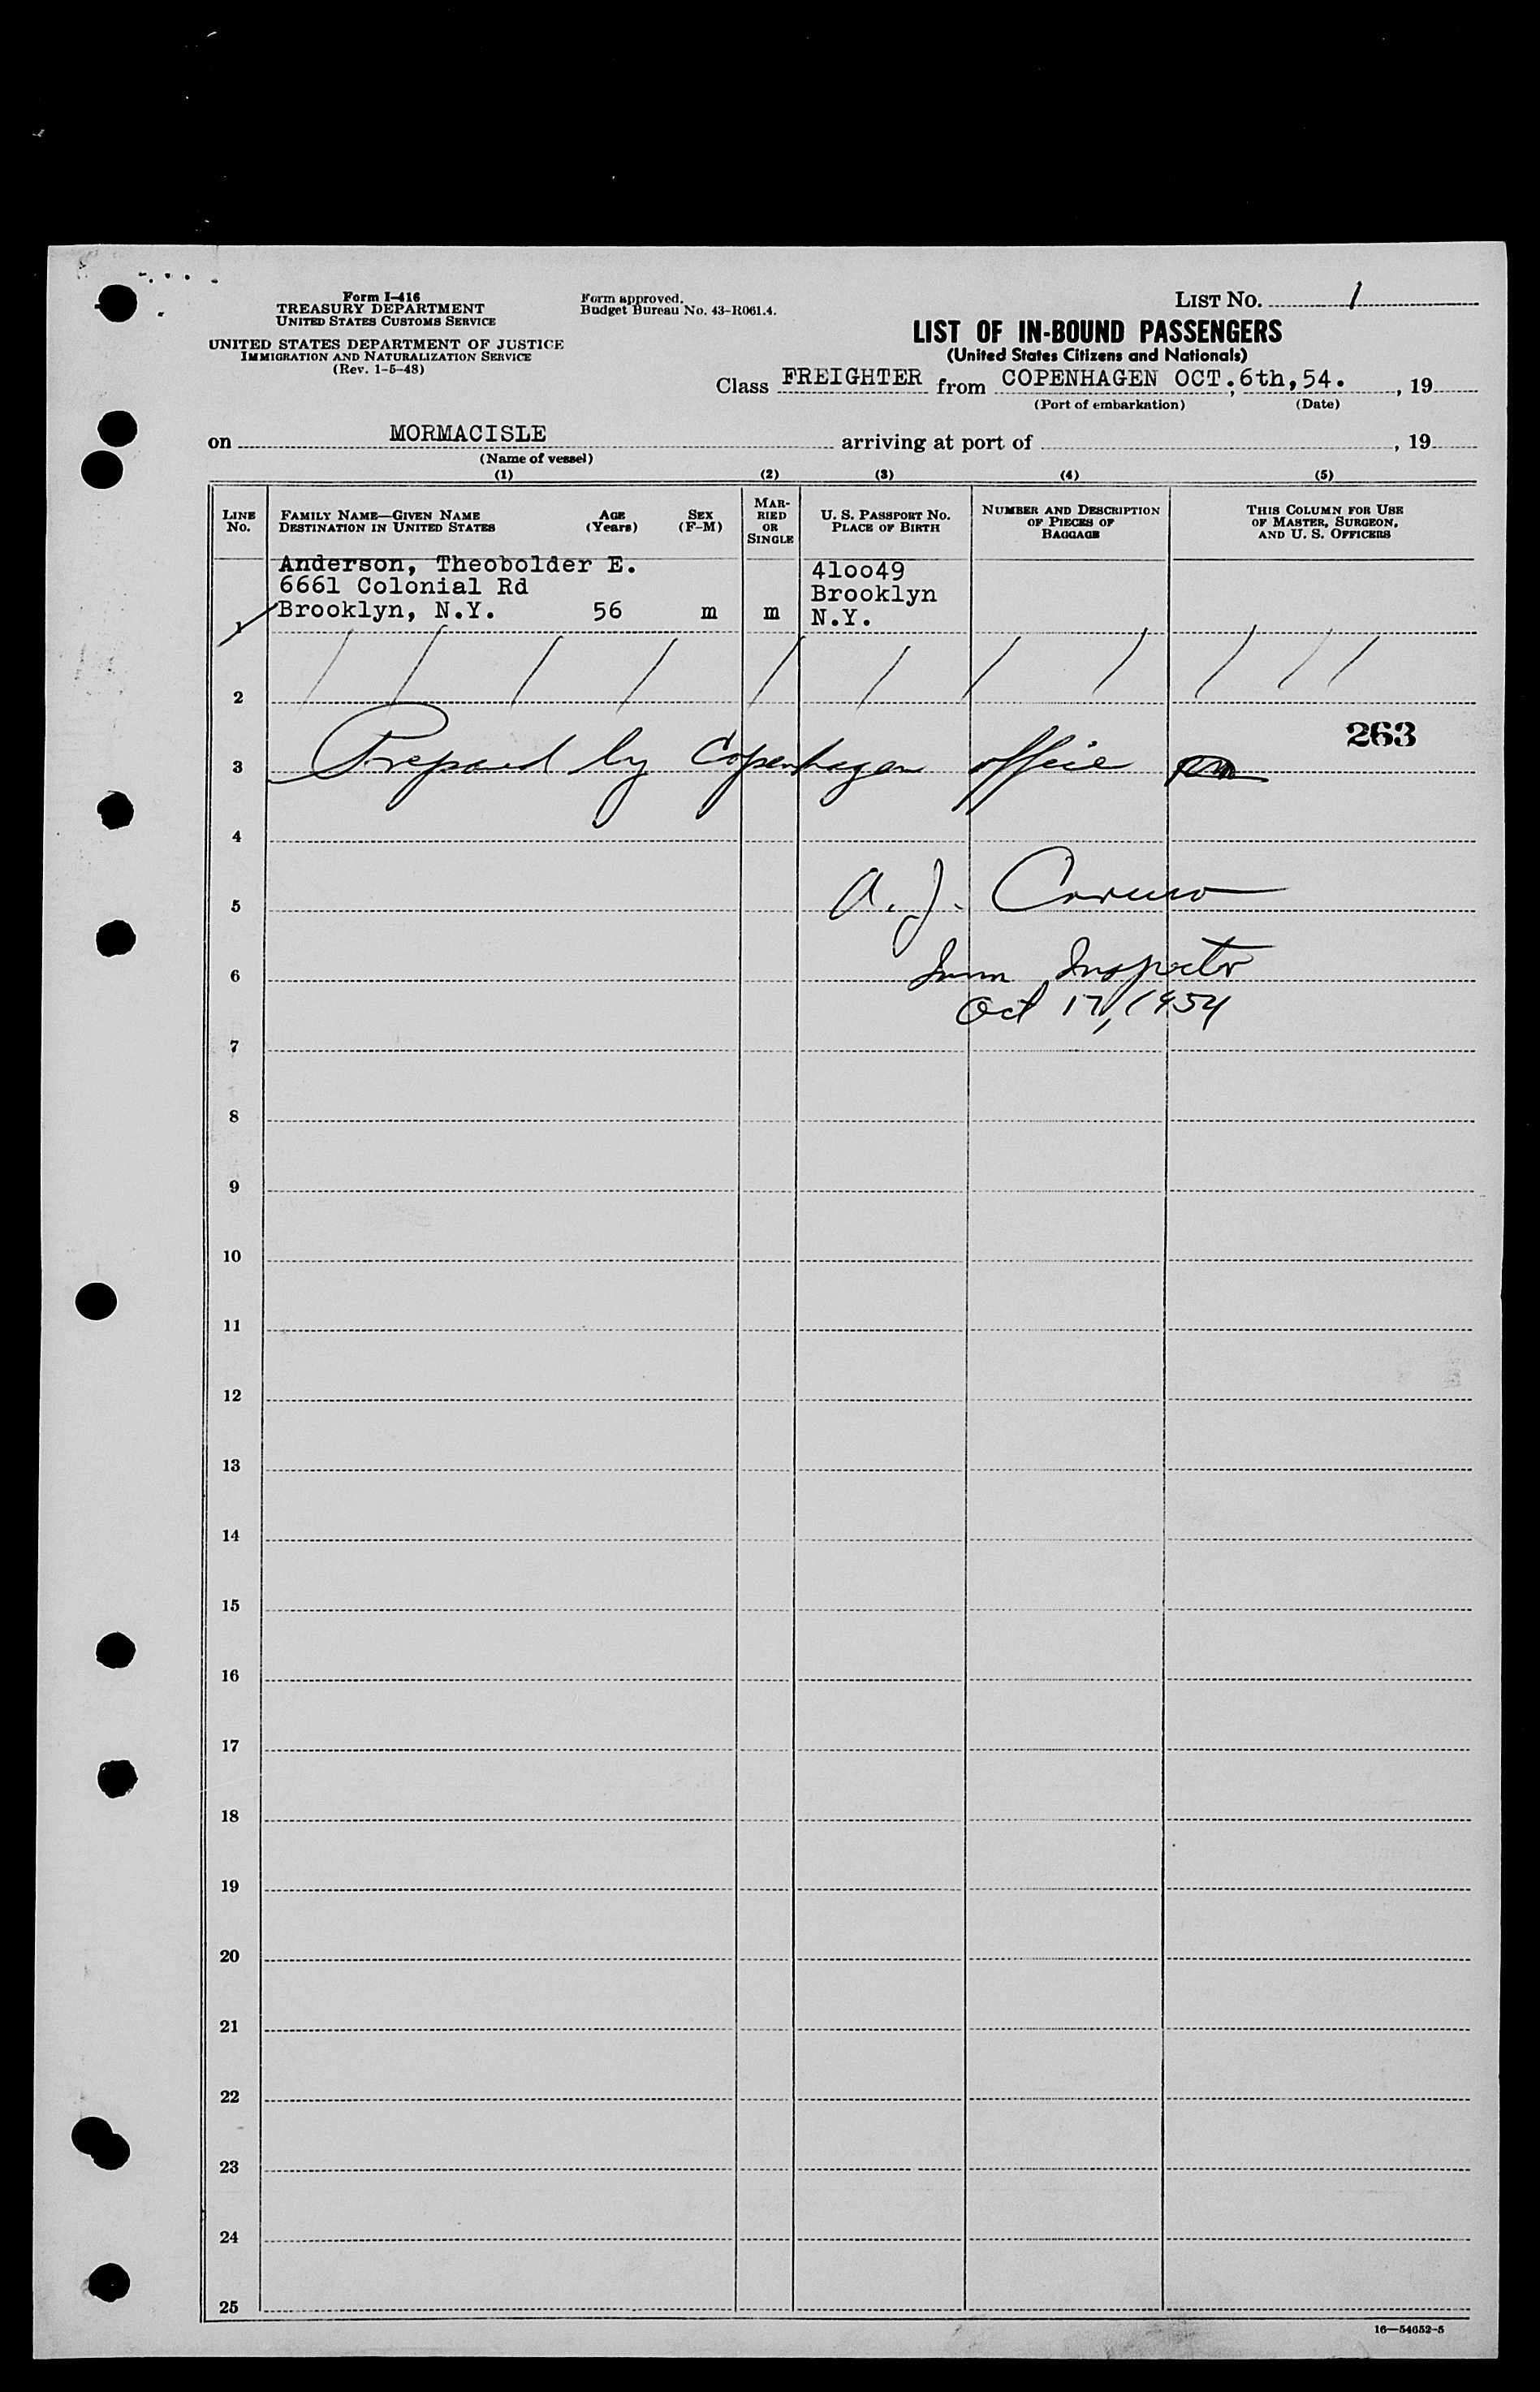 Form I-416
TREASURY DEPARTMENT
UNITED STATES CUSTOMS SERVICE
UNITED STATES DEPARTMENT OF JUSTICE
IMMIGRATION AND NATURALIZATION SERVICE
(Rev. 1-5-48)
Form approved.
Budget Bureau No. 43-R061.4.
LIST NO. 1
LIST OF IN-BOUND PASSENGERS
(United States Citizens and Nationals)
Class FREIGHTER from COPENHAGEN OCT., 6th, 54. , 19
(Port of embarkation) (Date)
on MORMACISLE arriving at port of , 19
(Name of vessel)
(1) (2) (3) (4) (5)
LINE NO.
FAMILY NAME—GIVEN NAME
DESTINATION IN UNITED STATES
AGE (Years)
SEX (F-M)
MARRIED OR SINGLE
U. S. PASSPORT NO.
PLACE OF BIRTH
NUMBER AND DESCRIPTION
OF PIECES OF
BAGGAGE
THIS COLUMN FOR USE
OF MASTER, SURGEON,
AND U. S. OFFICERS
Anderson, Theobolder E. 41oo49
6661 Colonial Rd Brooklyn
1 Brooklyn, N.Y. 56 m m N.Y.
2
263
3 Prepared by Copenhagen office
4
5 A. J. Caruso
6 Imm Inspector
Oct 17, 1954
7
8
9
10
11
12
13
14
15
16
17
18
19
20
21
22
23
24
25
16—54652-5